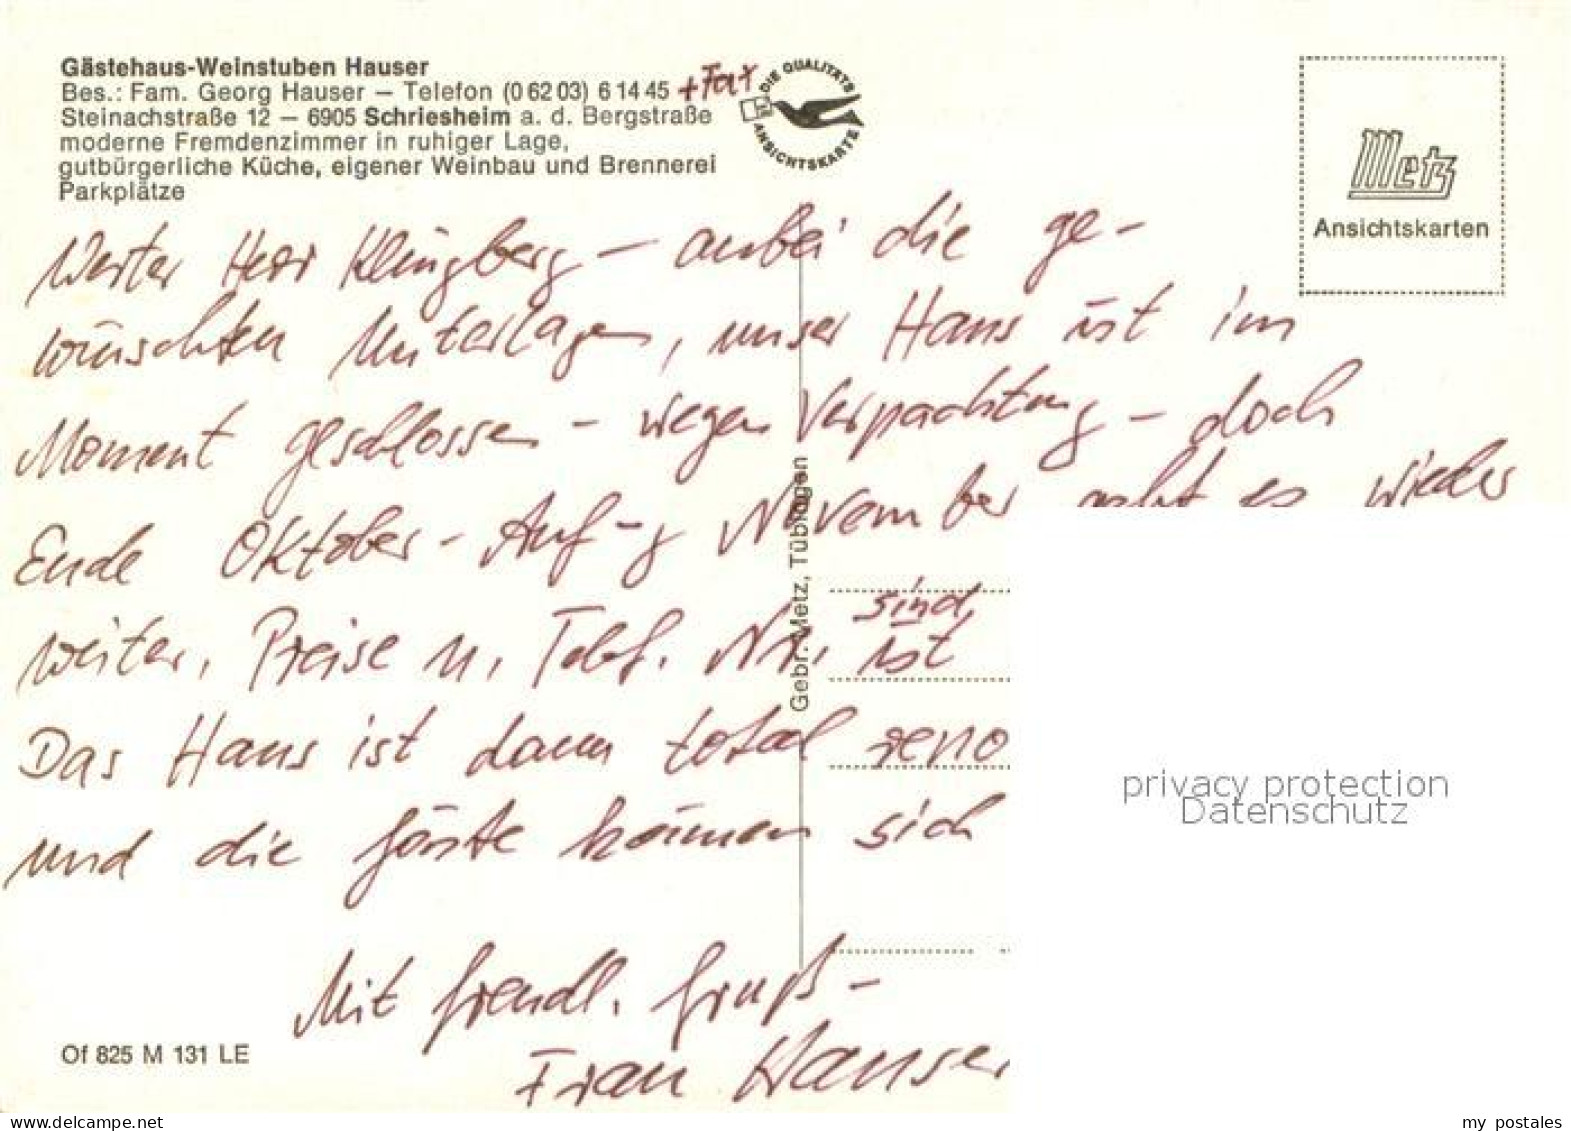 Gästehaus-Weinstuben Hauser
Bes.: Fam. Georg Hauser — Telefon (0 62 03) 6 14 45 + Fax
Steinachstraße 12 — 6905 Schriesheim a. d. Bergstraße
moderne Fremdenzimmer in ruhiger Lage,
gutbürgerliche Küche, eigener Weinbau und Brennerei
Parkplätze
DIE QUALITÄTS
ANSICHTSKARTE
Metz
Ansichtskarten
Werter Herr Klingberg – anbei die ge-
wünschten Unterlagen, unser Haus ist im
Moment geschlossen – wegen Verpachtung – doch
Ende Oktober - Anf-g November geht es wieder
weiter. Preise u. Telef. Nr. ist
sind
Das Haus ist dann total reno
und die Gäste können sich
Mit freundl. Gruß –
Frau Hauser
Gebr. Metz, Tübingen
Of 825 M 131 LE
privacy protection
Datenschutz
my postales
www.delcampe.net